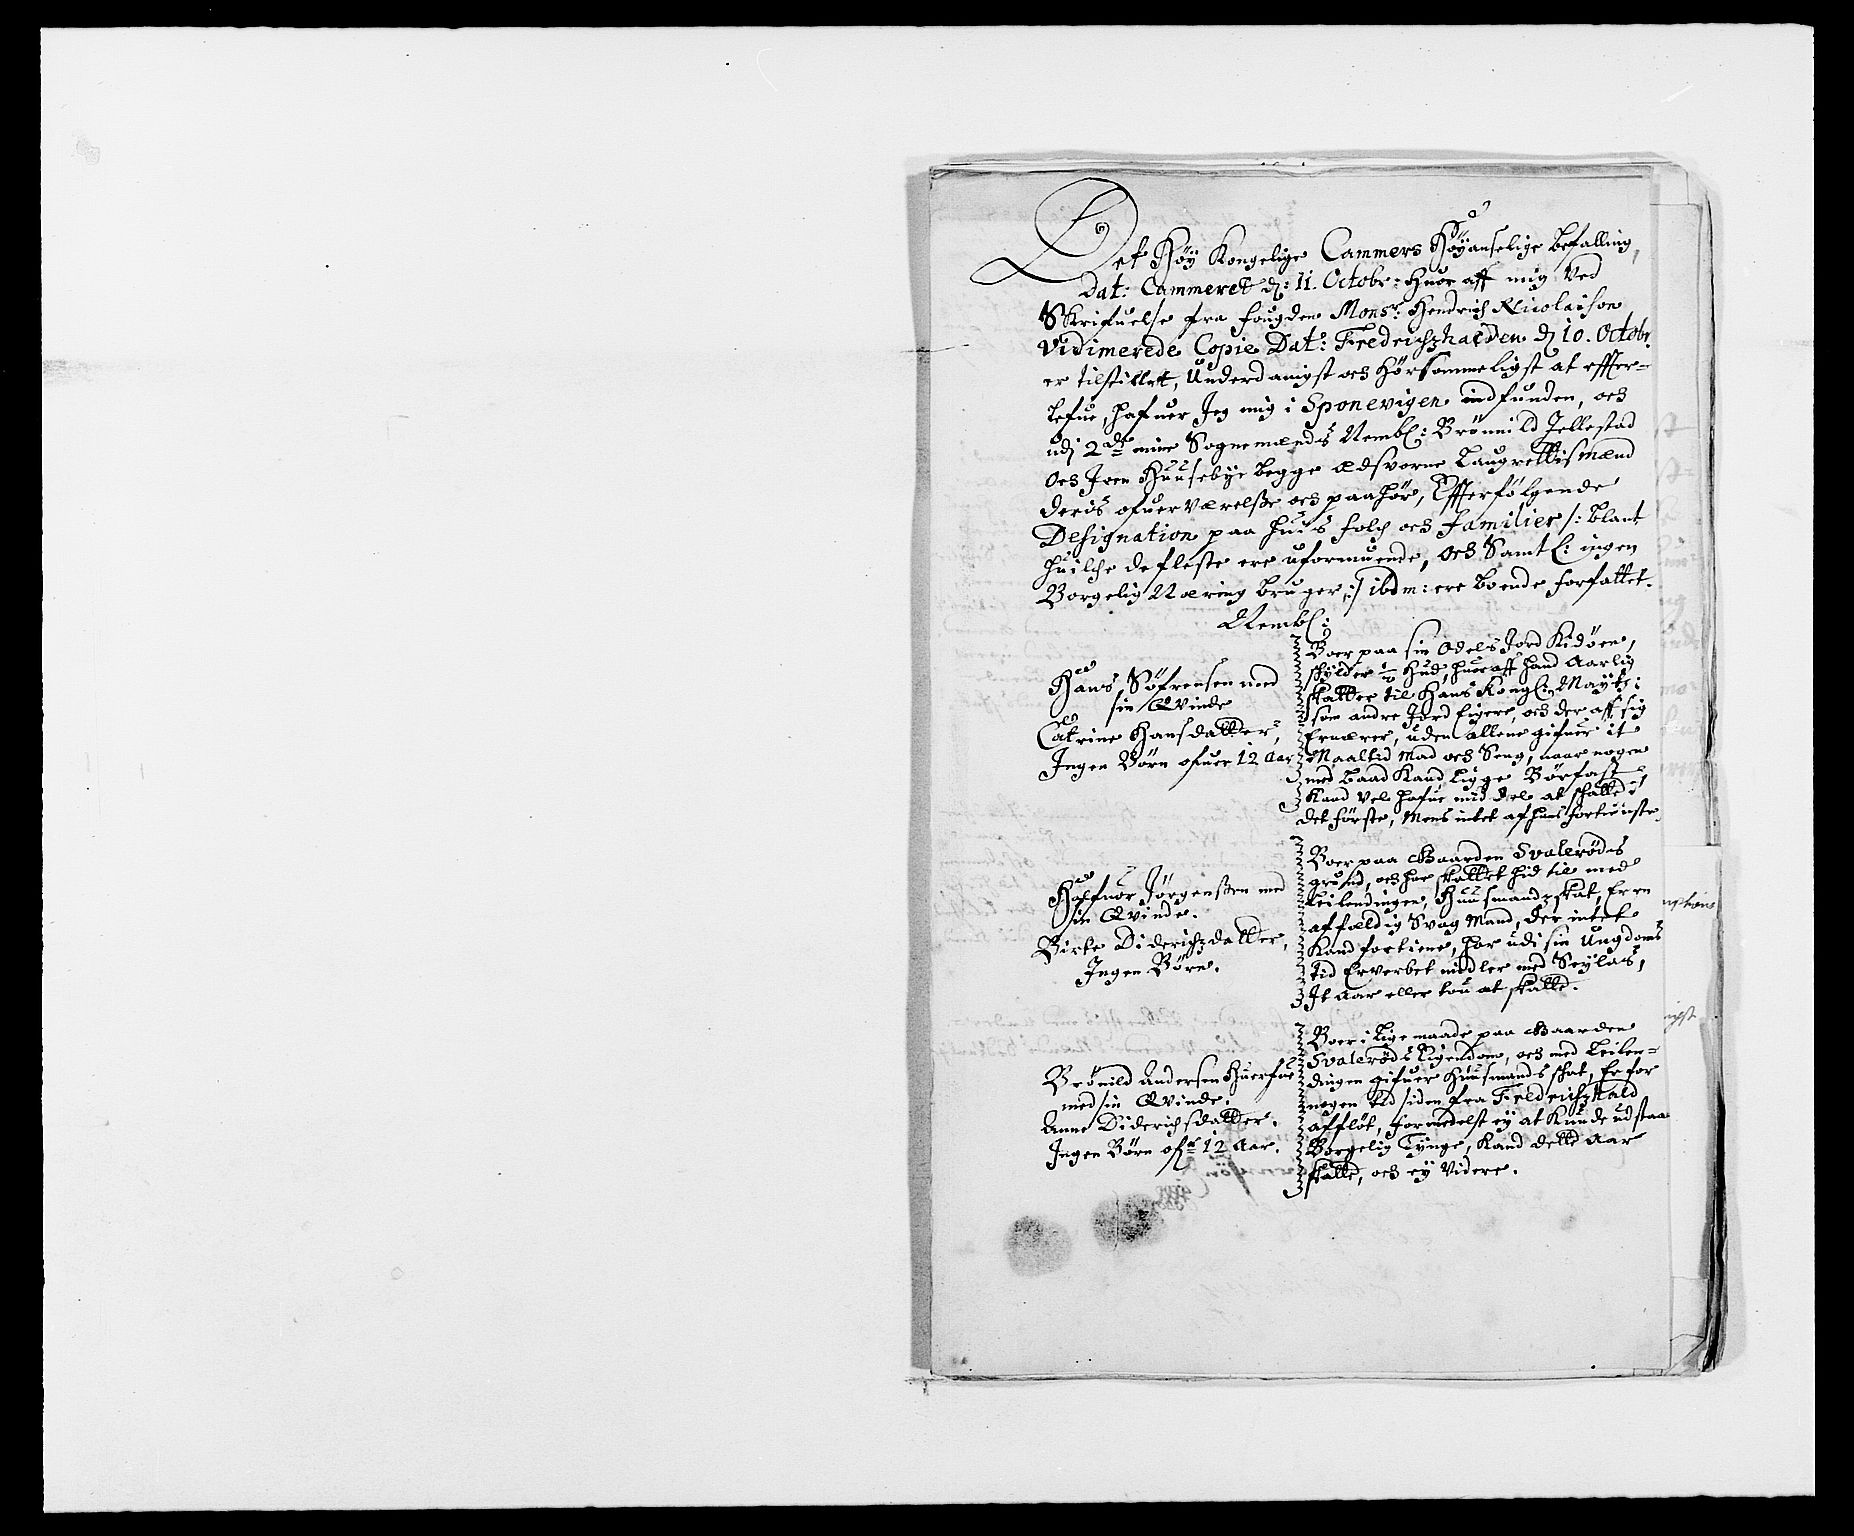 Det Höy Kongelige Cammers Höyanselige befalling,
Dat: Cammeret d: 11. Octobr: huor aff mig ved
Skrifuelse fra fougden Monsr. Hendrich Nicolaison
Vidimerede Copie Dat: Fredrichshalden d 10. Octobr
er tilstillet, Underdanigst och hörsommeligst at effter-
lefue, hafuer Jeg mig i Sponevigen indfunden, och
udj 2de mine Sognemænds Nembl: Brönnild Jellestad
och Joen Huusebye begge ædsvorne Laugrettismænd
deris ofuerværelsse och paahör, Effterfölgende
Designation paa huis folch och familier /: blant
huilche de fleste ere uformuende, och Samtl: ingen
Borgelig Næring bruger :/ ibdm: ere boende forfattet.
Nembl:
Hans Söfrensen med
sin Qvinde
Catrine Hansdatter,
Ingen Börn ofuer 12 Aar
Boer paa sin Odels Jord Kidöen,
schylder 1/2 Hud, huor aff hand Aarlig
skatter til Hans Kongl: Mayts:
som andre Jord Eigere, och der aff sig
Ernærer, uden allene gifuer it
Maaltid Mad och Seng, naar nogen
med Baad Kand ligge Börfast,
Kand vel hafue mid del at schatte i
det förste, Mens intet af hans fortieniste.
Halfuor Jörgenssen med
sin Qvinde.
Birte Diderichsdatter,
Ingen Börn.
Boer paa Gaarden Svaleröds
grund, och har skattet hid til med
Leilendingen, Huusmandz skat, Er en
affældig Svag Mand, der intet
Kand fortiene, har udi sin Ungdoms
tid Erverbet midler med Seylas,
It Aar eller tou at skatte.
Brönild Andersen Huerfue
med sin Qvinde.
Anne Diderichsdatter.
Ingen Börn ofr 12 Aar.
Boer i lige maade paa Gaarden
Svaleröds Eigendom, och med Leilen-
dingen gifuer Huusmands schat, Er for
nogen tid siden fra Fredrichshald
afflöt, formedelst ey at Kunde udstaa
Borgelig Tynge, Kand dette Aar
skatte, och ey Videre.